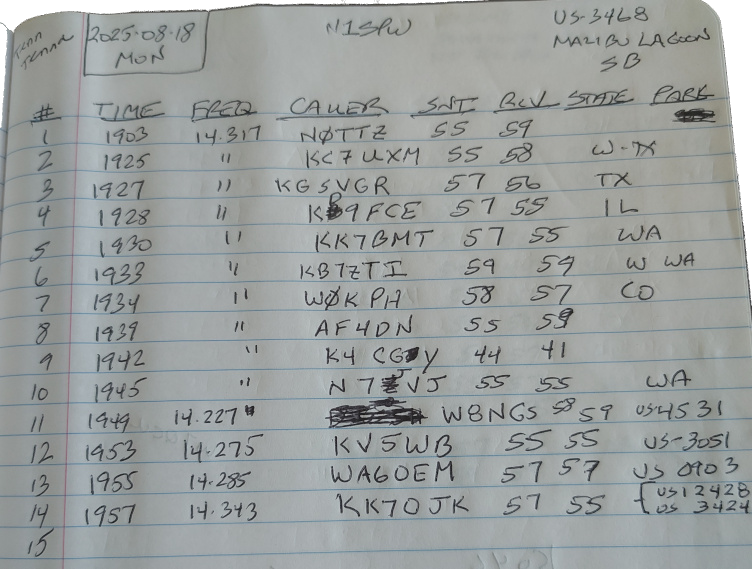 2025-08-18 N1SPW US-3468
MON MALIBU LAGOON
SB
# TIME FREQ CALLER SNT RCV STATE PARK
1 1903 14.317 NØTTZ 55 59
2 1925 " KC7UXM 55 58 W-TX
3 1927 " KG5VGR 57 56 TX
4 1928 " KB9FCE 57 55 IL
5 1930 " KK7BMT 57 55 WA
6 1933 " KB7ZTI 59 59 W WA
7 1934 " WØKPH 58 57 CO
8 1939 " AF4DN 55 59
9 1942 " K4CGY 44 41
10 1945 " N7JVJ 55 55 WA
11 1949 14.227 W8NGS 58 59 US4531
12 1953 14.275 KV5WB 55 55 US-3051
13 1955 14.285 WA6OEM 57 57 US 0903
14 1957 14.343 KK7OJK 57 55 { US12428
US 3424
15